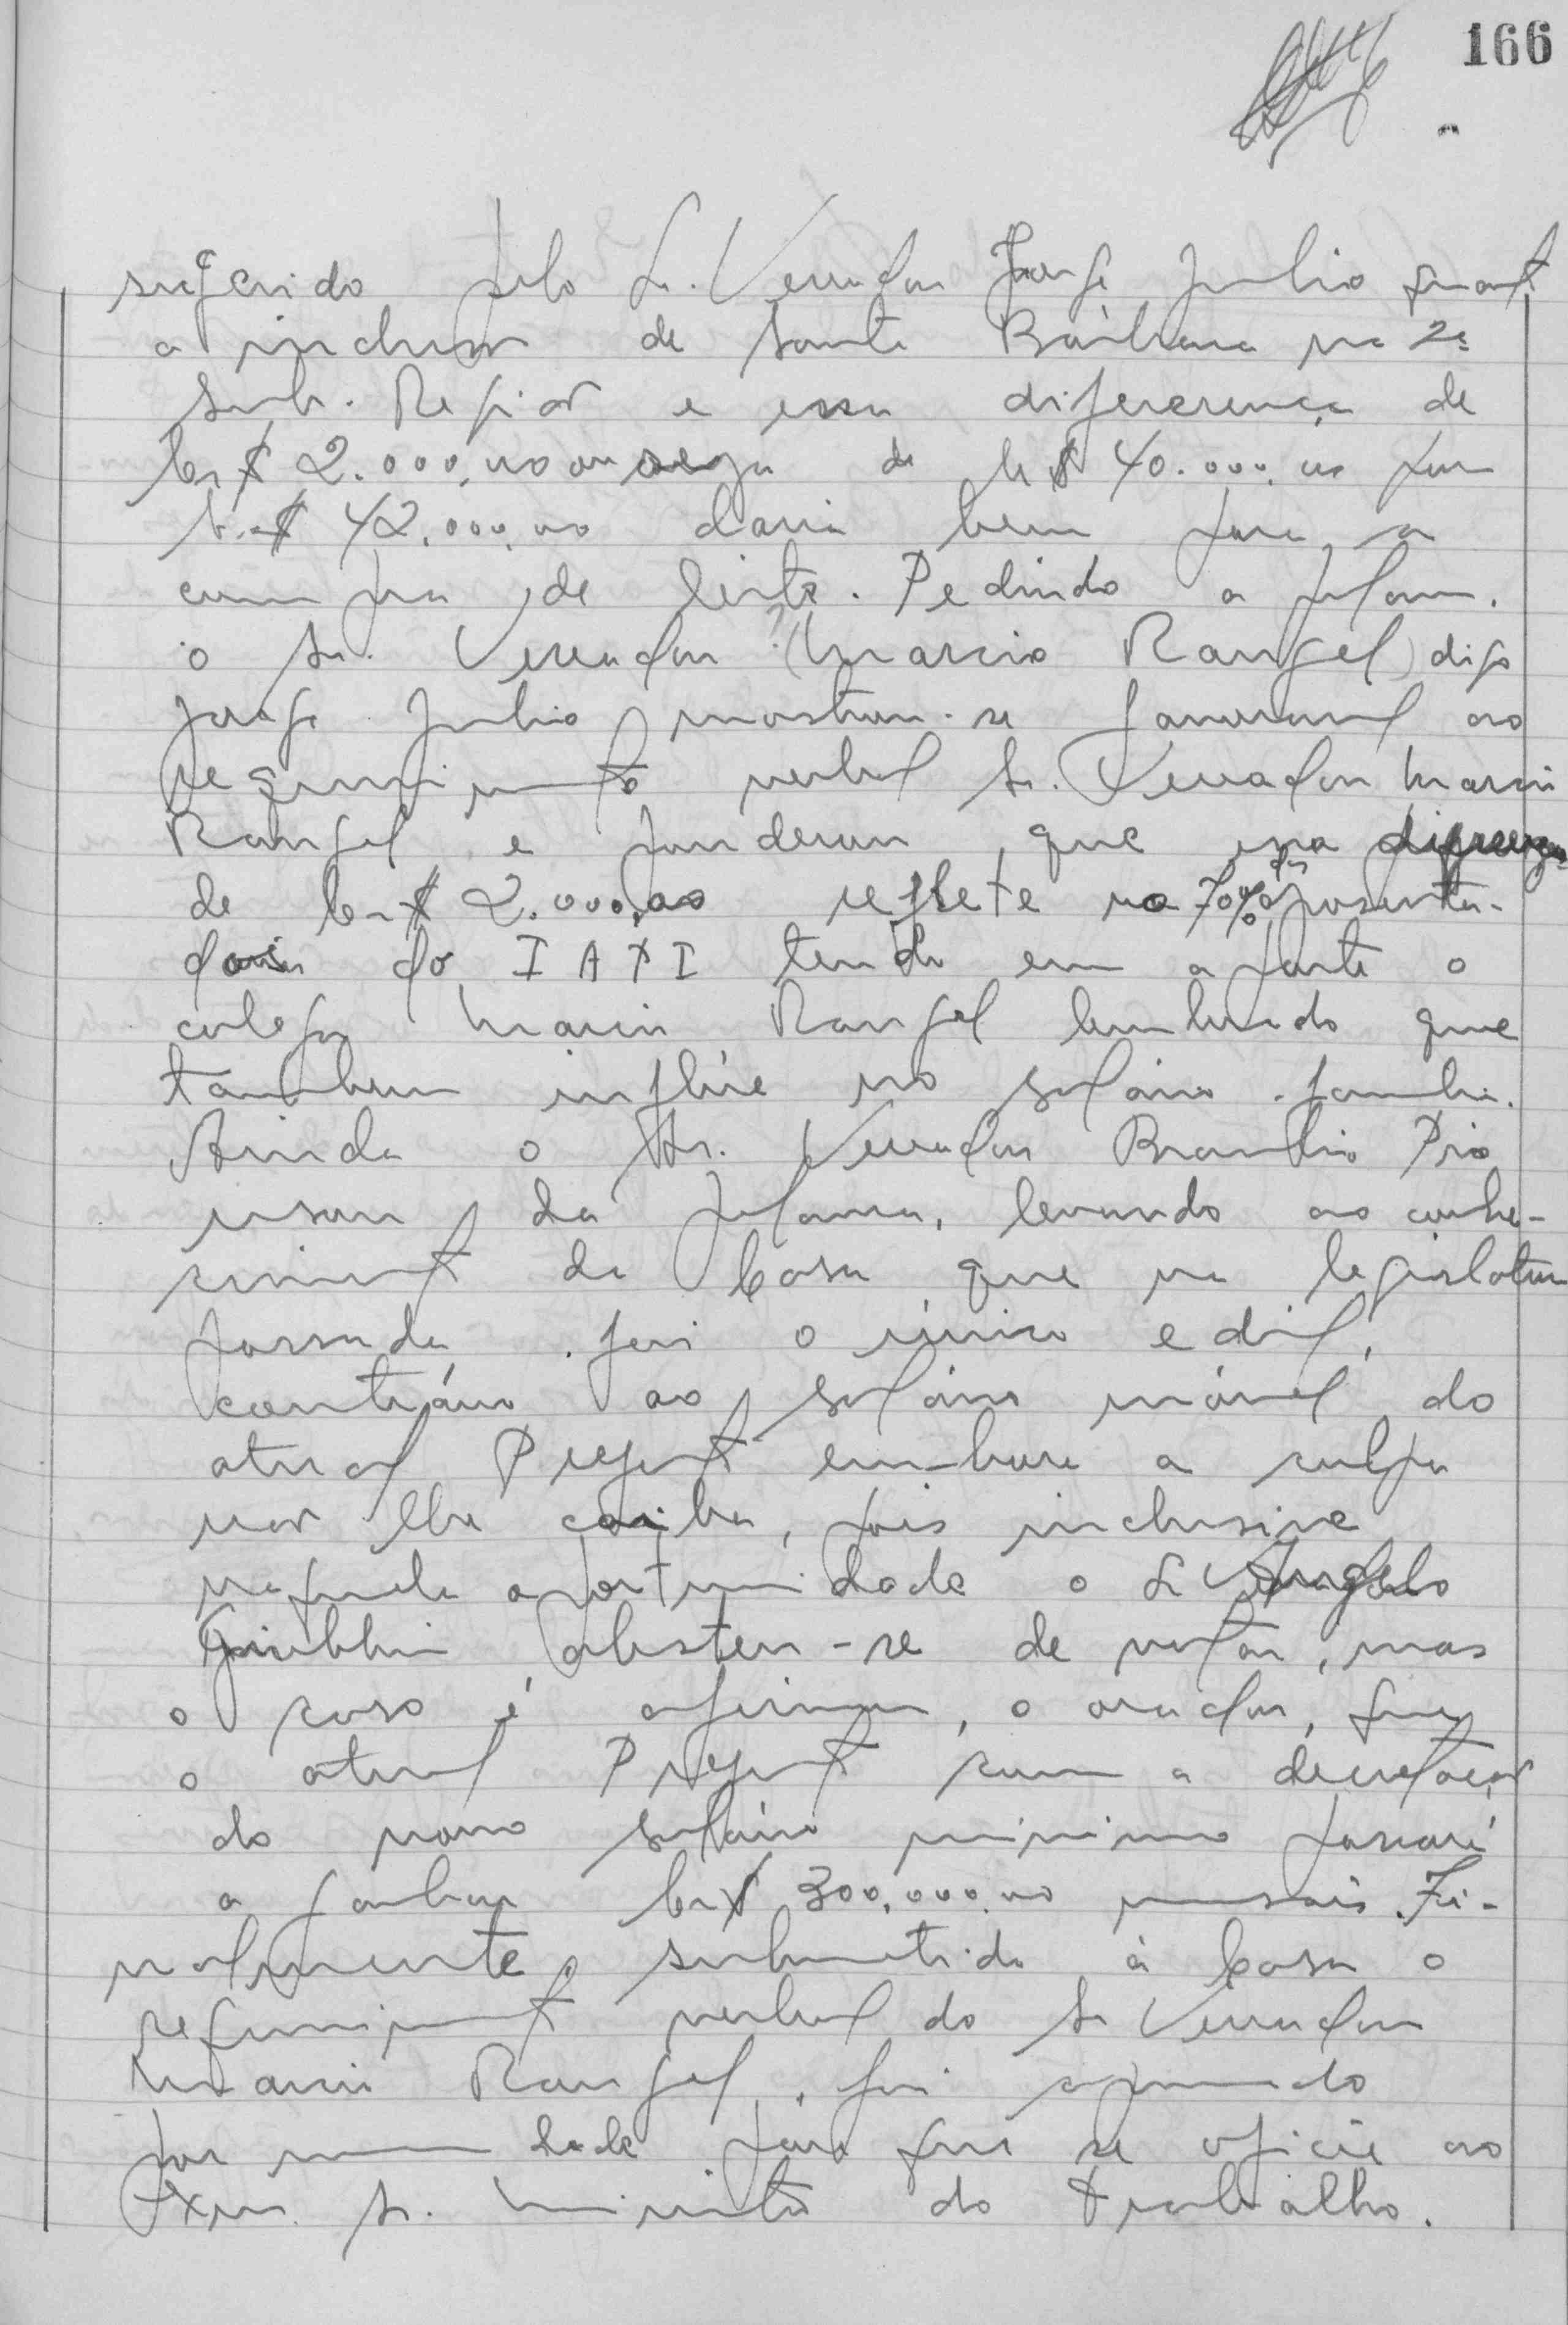 166
sugerido pelo Sr. Vereador Jorge Julio quant
a inclusão de Santa Bárbara na 2ª
Sub. Região e essa difererença de
Cr$ 2.000,00 ou seja de Cr$ 40.000,00 para
Cr$ 42.000,00 daria bem para a
compra de leite. Pedindo a palavra.
o Sr. Vereador (Marcio Rangel) digo
Jorge Julio mostrou-se favoravel ao
requerimento verbal Sr. Vereador Marcio
Rangel e ponderou que essa diferença
de Cr$ 2.000,00 reflete no 70% dos aposenta-
dos do IAPI tendo em aparte o
colega Marcio Rangel lembrado que
tambem inflúe no salário familia.
Ainda o Sr. Vereador Brandio Pio
usou da palavra, levando ao conhe-
cimento da Casa que na legislatura
passada foi o único edil,
contrário ao salário móvel do
atual Prefeito embora a culpa
não lhe caiba, pois inclusive
naquela oportunidade o Sr Angelo
Giubbini absteu-se de votar, mas
o caso é afirmou, o orador, que
o atual Prefeito com a decretação
do novo salário minimo passará
a ganhar Cr$ 300.000,00 mensais. Fi-
nalmente, submetido à Casa o
requerimento verbal do Sr Vereador
Marcio Rangel, foi aprovado
por unanimidade para que se oficie ao
Exmo. Sr. Ministro do Trabalho.